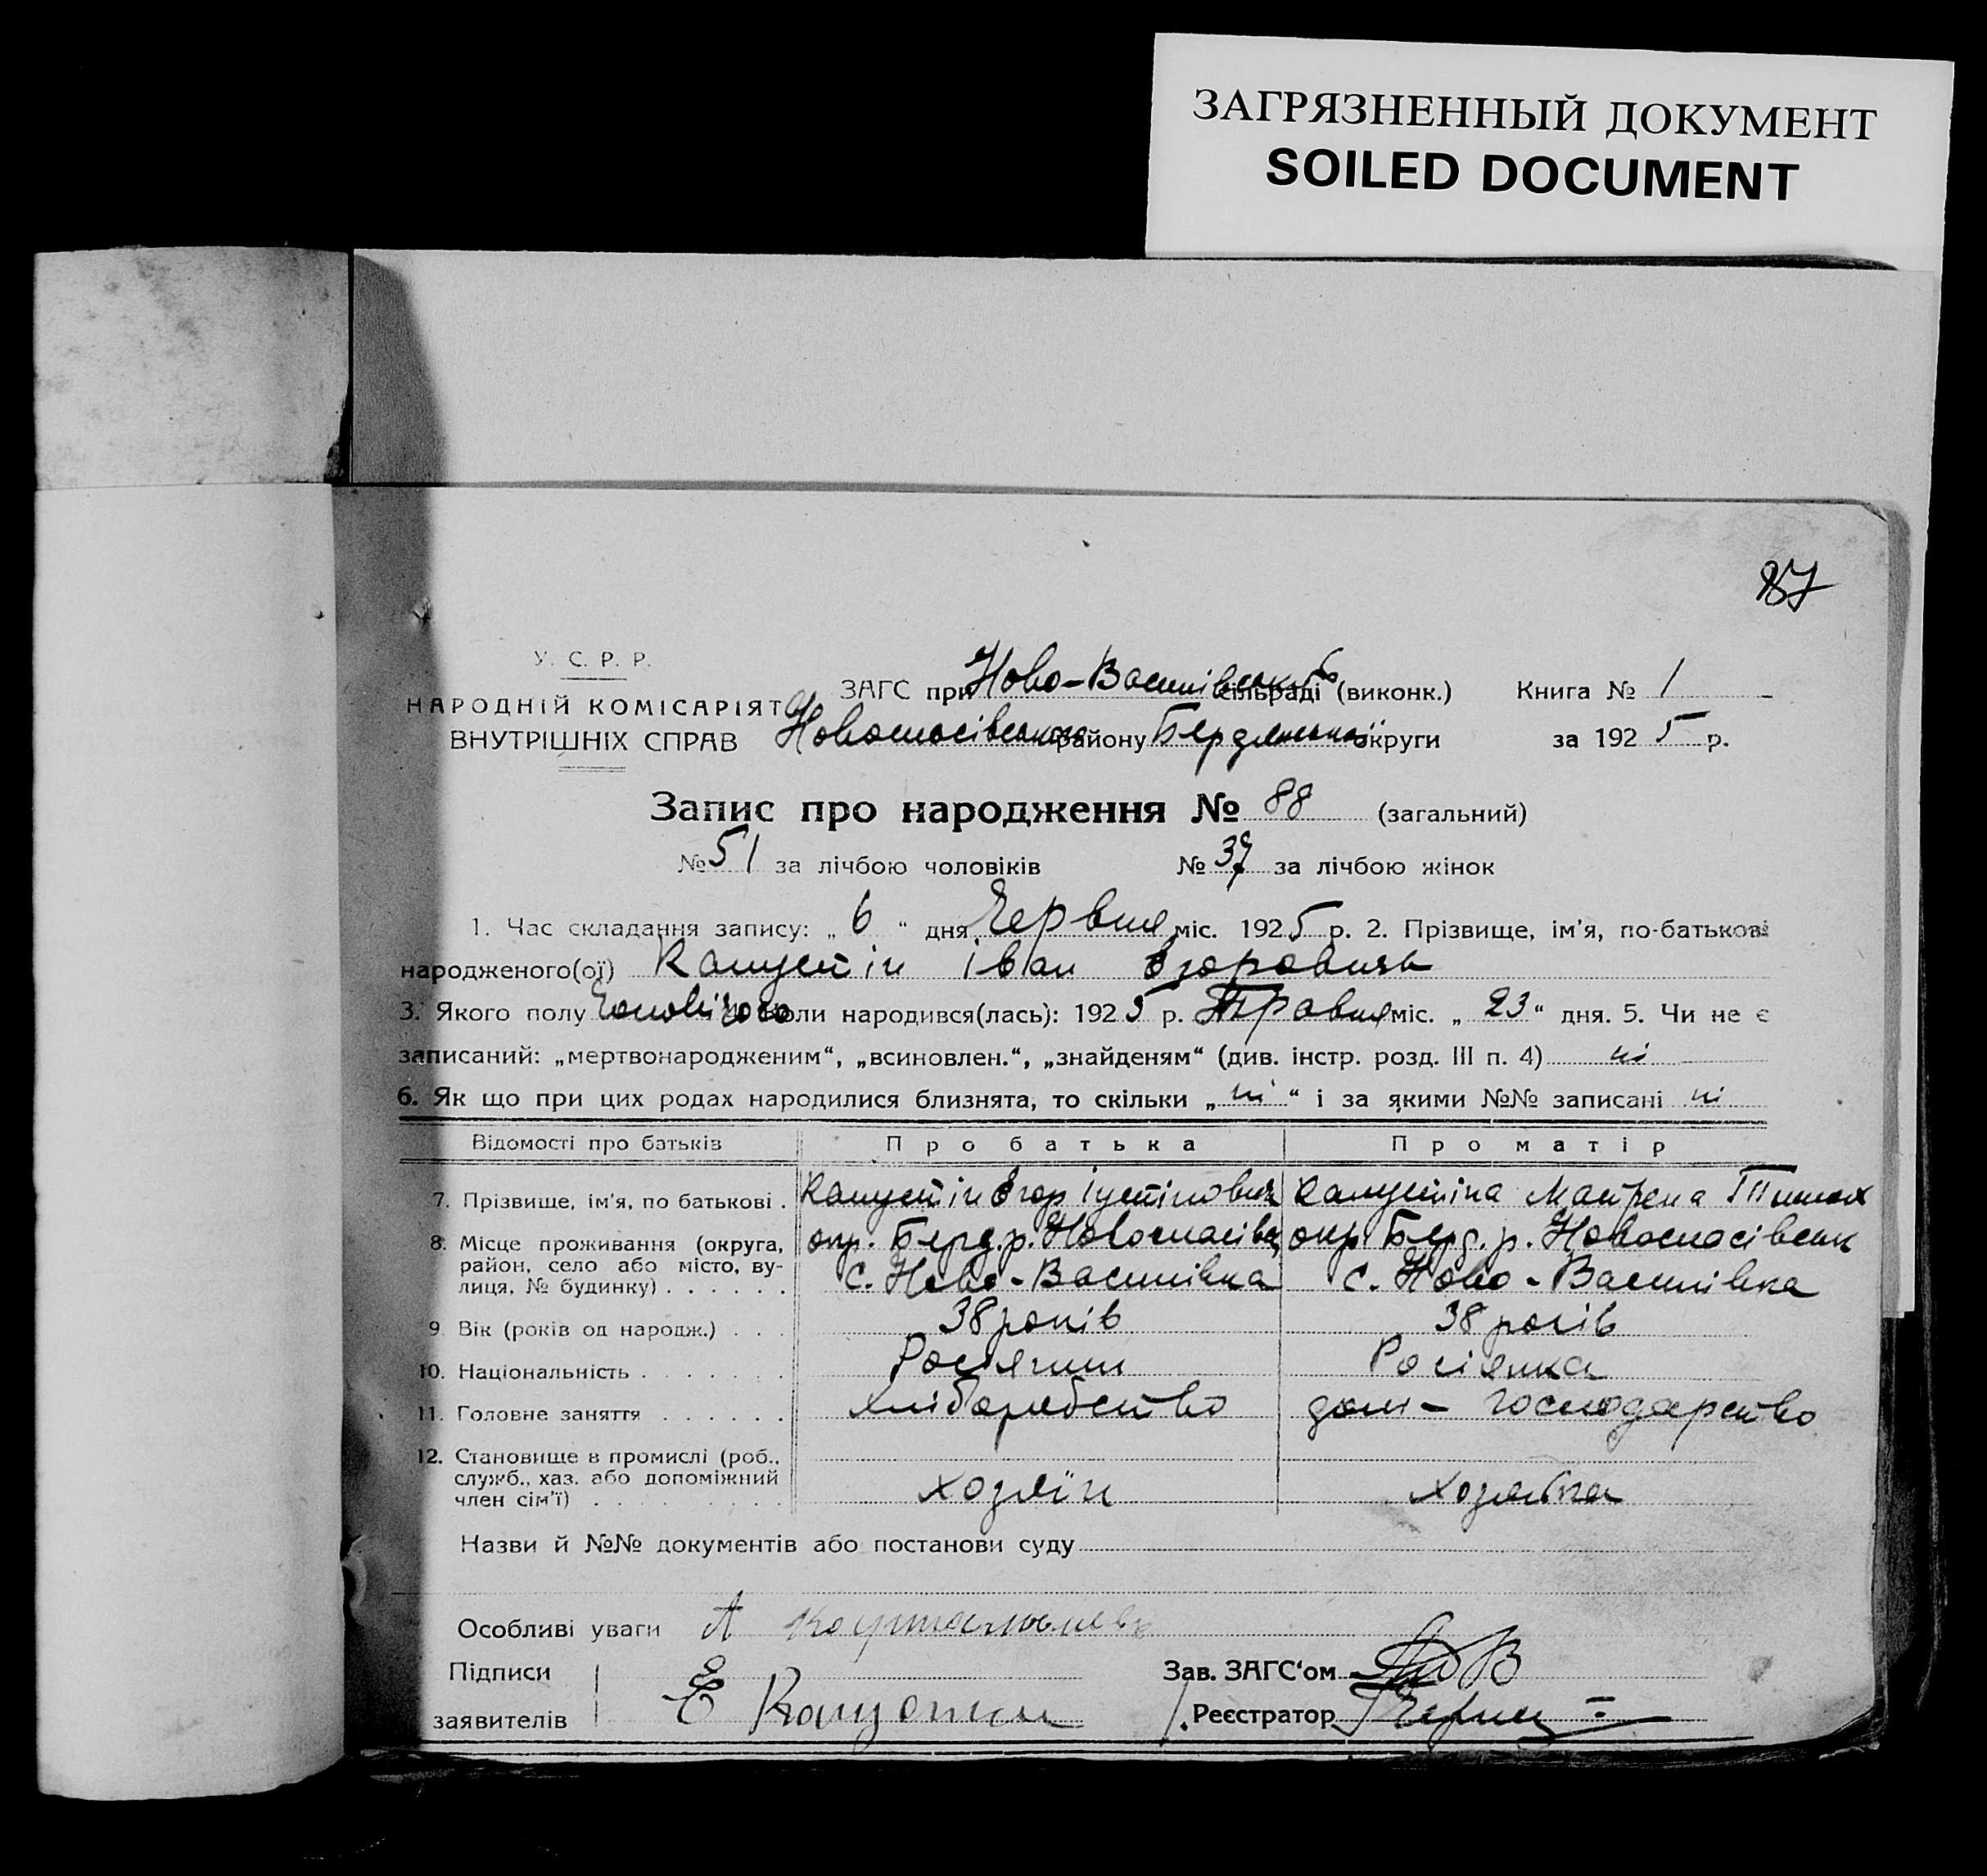 ЗАГРЯЗНЕННЫЙ ДОКУМЕНТ
SOILED DOCUMENT
У. С. Р. Р.
НАРОДНІЙ КОМІСАРІЯТ
ВНУТРІШНІХ СПРАВ
ЗАГС при Ново-Василівській сільраді (виконк.) Книга № 1
Новоспасівського району Бердянської округи за 1925 р.
Запис про народження № 88 (загальний)
№ 51 за лічбою чоловіків № 37 за лічбою жінок
1. Час складання запису: „ 6 “ дня Червня міс. 1925 р. 2. Прізвище, ім'я, по-батькові
народженого(ої) Капустін Іван Єгорович
3. Якого полу коли народився(лась): 1925 р. Травня міс. „ 23 “ дня. 5. Чи не є
записаний: „мертвонародженим“, „всиновлен.“, „знайденям“ (див. інстр. розд. III п. 4) ні
6. Як що при цих родах народилися близнята, то скільки „ ні “ і за якими №№ записані ні
Відомості про батьків Про батька Про матір
7. Прізвище, ім'я, по батькові . Капустін Єгор Іустінович Капустіна Мотрена
8. Місце проживання (округа, район, село або місто, вулиця, № будинку) . . . . . . окр. Берд. р. Новоспасівськ окр. Берд. р. Новоспасівськ
с. Ново-Василівка с. Ново-Василівка
9. Вік (років од народж.) . . . 38 років 38 років
10. Національність . . . . . . . Росіянин Росіянка
11. Головне заняття . . . . . . хліборобство дом-господарство
12. Становище в промислі (роб., служб., хаз. або допоміжний член сім'ї) . . . . . . хозяїн хозяйка
Назви й №№ документів або постанови суду
Особливі уваги
Підписи
заявителів Е Капустин
Зав. ЗАГС'ом
Реєстратор